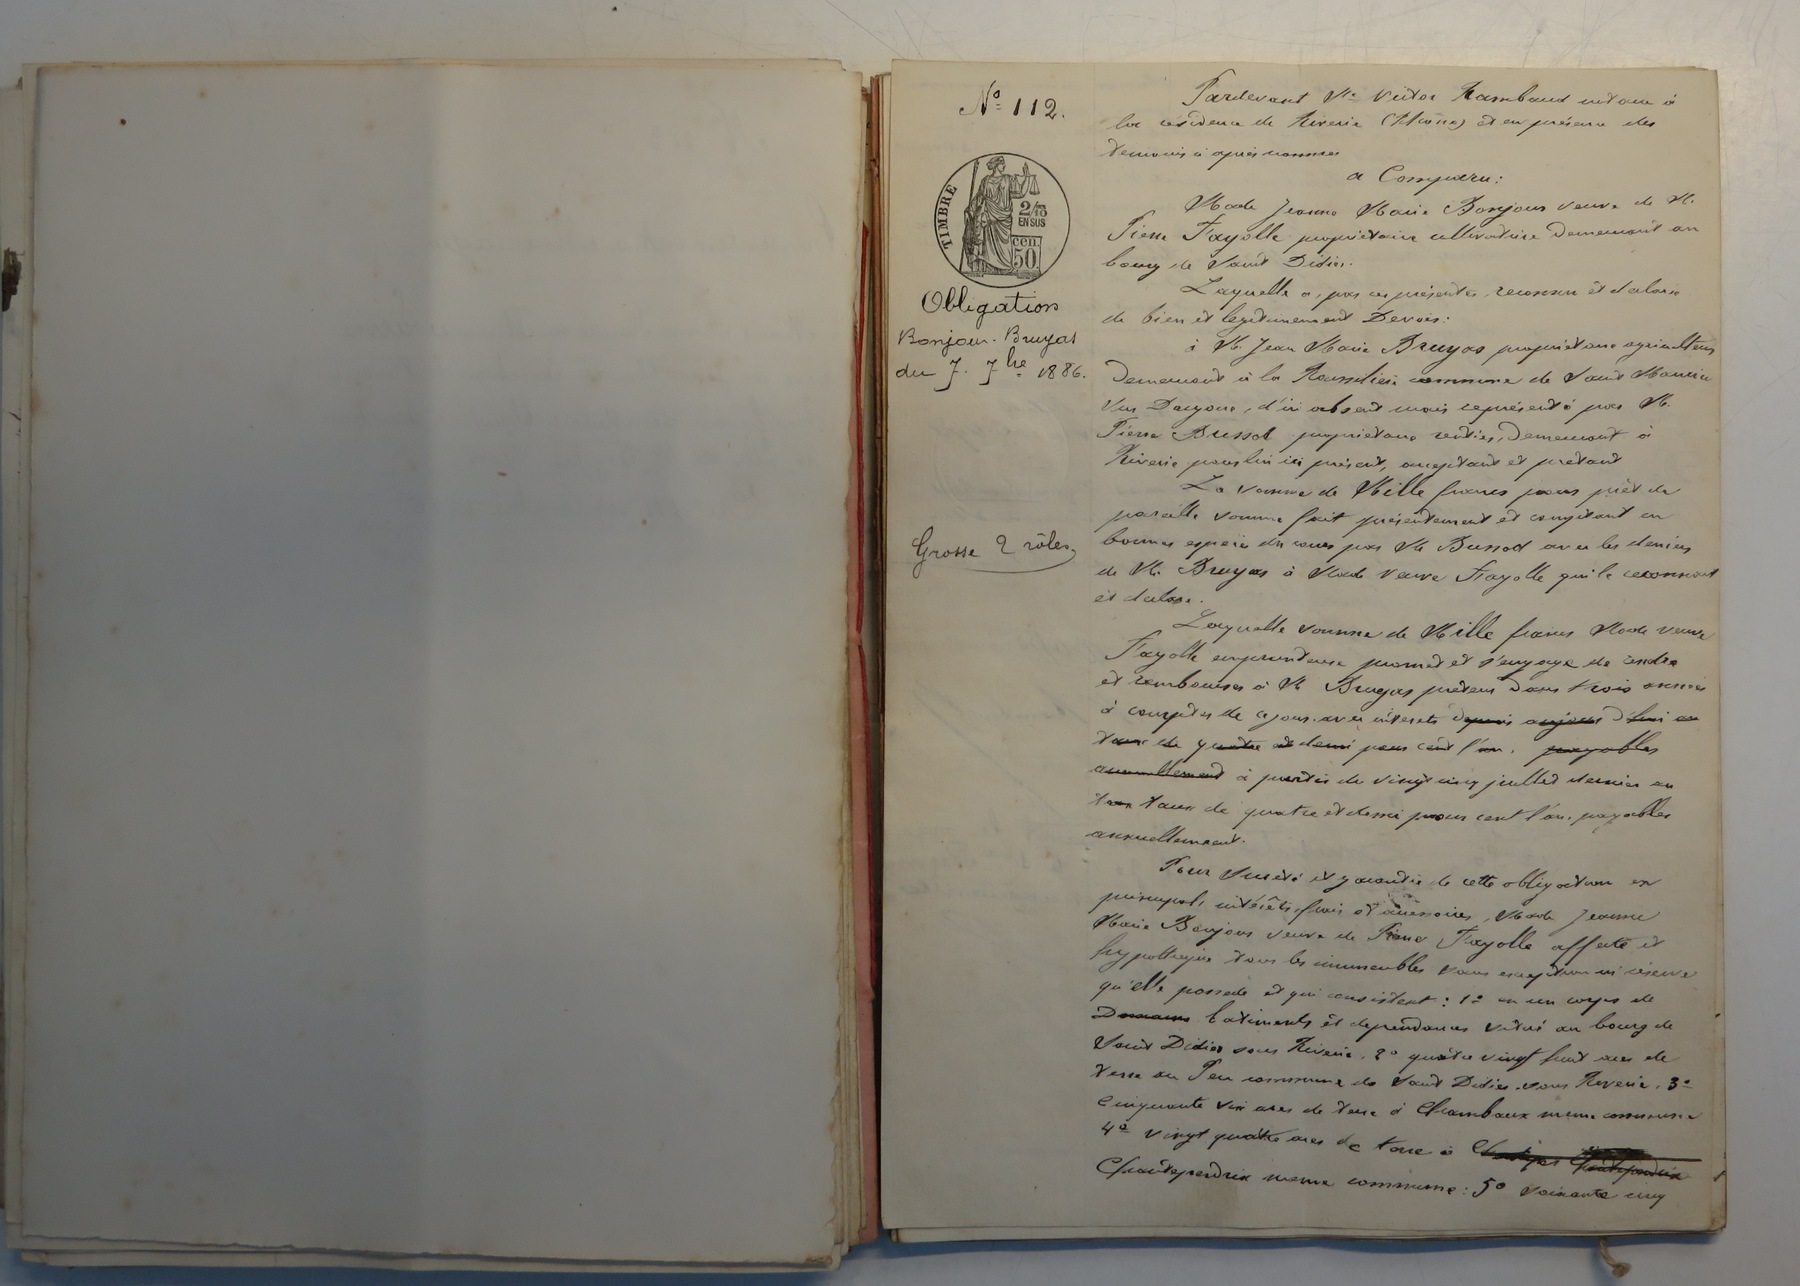 N° 112.
TIMBRE
2/10
EN SUS
cen.
50.
Obligation
Bonjour-Bruyas
du 7. 7bre 1886.
Grosse 2 rôles
Pardevant Me Victor Rambaud notaire à
la résidence de Riverie (Rhône) et en présence des
témoins ci après nommés
a Comparu:
Made Jeanne Marie Bonjour veuve de M.
Pierre Fayolle propriétaire cultivatrice demeurant au
bourg de Saint Didier.
Laquelle a, par ces présentes, reconnu et déclaré
de bien et légitimement Devoir:
à M. Jean Marie Bruyas propriétaire agriculteur
demeurant à la commune de Saint Maurice
sur Dargoire, d'ici absent mais représenté par M.
Pierre Bussod propriétaire rentier, demeurant à
Riverie pour lui ici présent, acceptant et prêtant
La somme de Mille francs pour prêt de
pareille somme fait présentement et comptant en
bonnes espèces du cours par M. Bussod avec les deniers
de M. Bruyas à Made veuve Fayolle qui le reconnait
et déclare.
Laquelle somme de Mille francs Made veuve
Fayolle emprunteuse promet et s'engage de rendre
et rembourser à M. Bruyas prêteur dans trois années
à compter de ce jour. avec intérêts depuis aujourd'hui au
taux de quatre et demi pour cent l'an, payables
annuellement à partir de vingt cinq juillet dernier au
taux de quatre et demi pour cent l'an, payables
annuellement.
Pour sureté et garantie de cette obligation en
principal, intérêts, frais et accessoires, Made Jeanne
Marie Bonjour veuve de Pierre Fayolle affecte et
hypothèque tous les immeubles sans exception ni réserve
qu'elle possède et qui consistent: 1° en un corps de
Domaine batiments et dépendances situé au bourg de
Saint Didier sous Riverie. 2° quatre vingt huit ares de
terre au Peu commune de Saint Didier sous Riverie. 3°
Cinquante six ares de terre à Chambaux meme commune
4° vingt quatre ares de terre à
Chanteperdrix meme commune: 5° soixante cinq